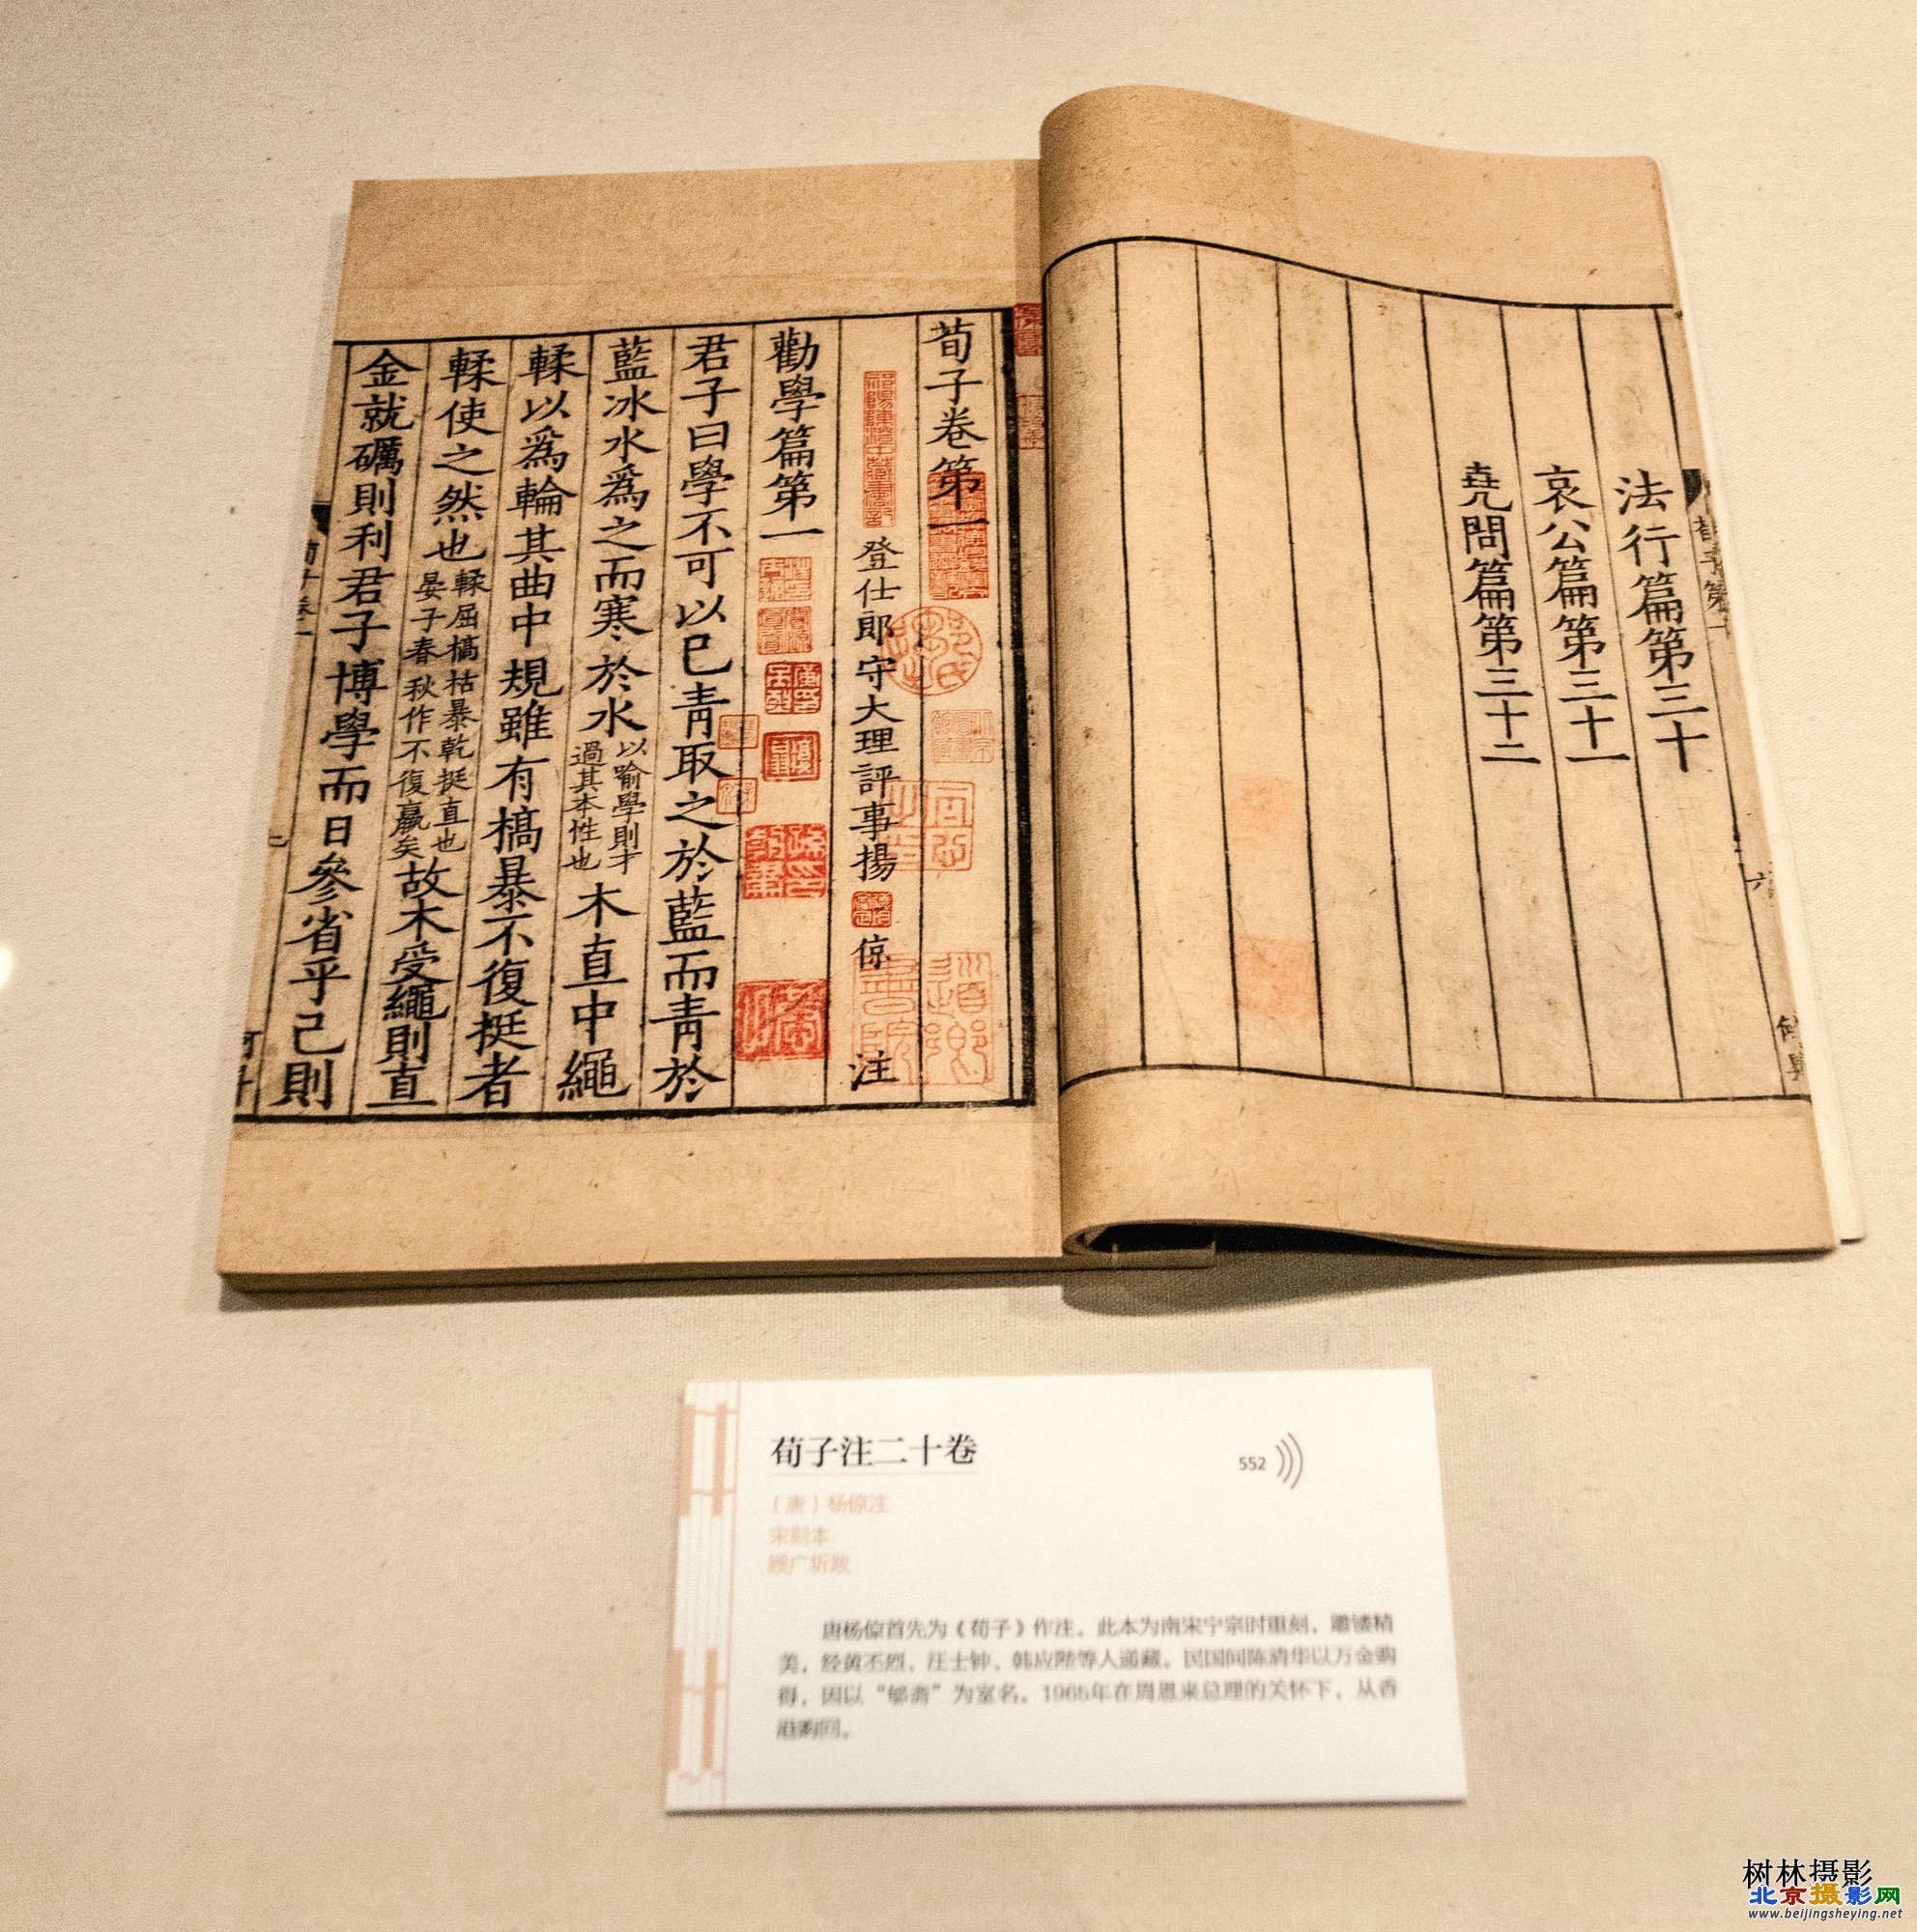 法行篇第三十
哀公篇第三十一
堯問篇第三十二
荀子卷第一
登仕郎守大理評事揚倞注
勸學篇第一
君子曰學不可以已青取之於藍而青於
藍冰水爲之而寒於水以喻學則才過其本性也木直中繩
輮以爲輪其曲中規雖有槁暴不復挺者
輮使之然也輮屈槁枯暴乾挺直也晏子春秋作不復羸矣故木受繩則直
金就礪則利君子博學而日參省乎己則
荀子注二十卷
552
（唐）杨倞注
宋刻本
顾广圻跋
唐杨倞首先为《荀子》作注。此本为南宋宁宗时重刻，雕镂精
美，经黄丕烈、汪士钟、韩应陛等人递藏。民国间陈清华以万金购
得，因以“郇斋”为室名。1965年在周恩来总理的关怀下，从香
港购回。
树林摄影
北京摄影网
www.beijingsheying.net